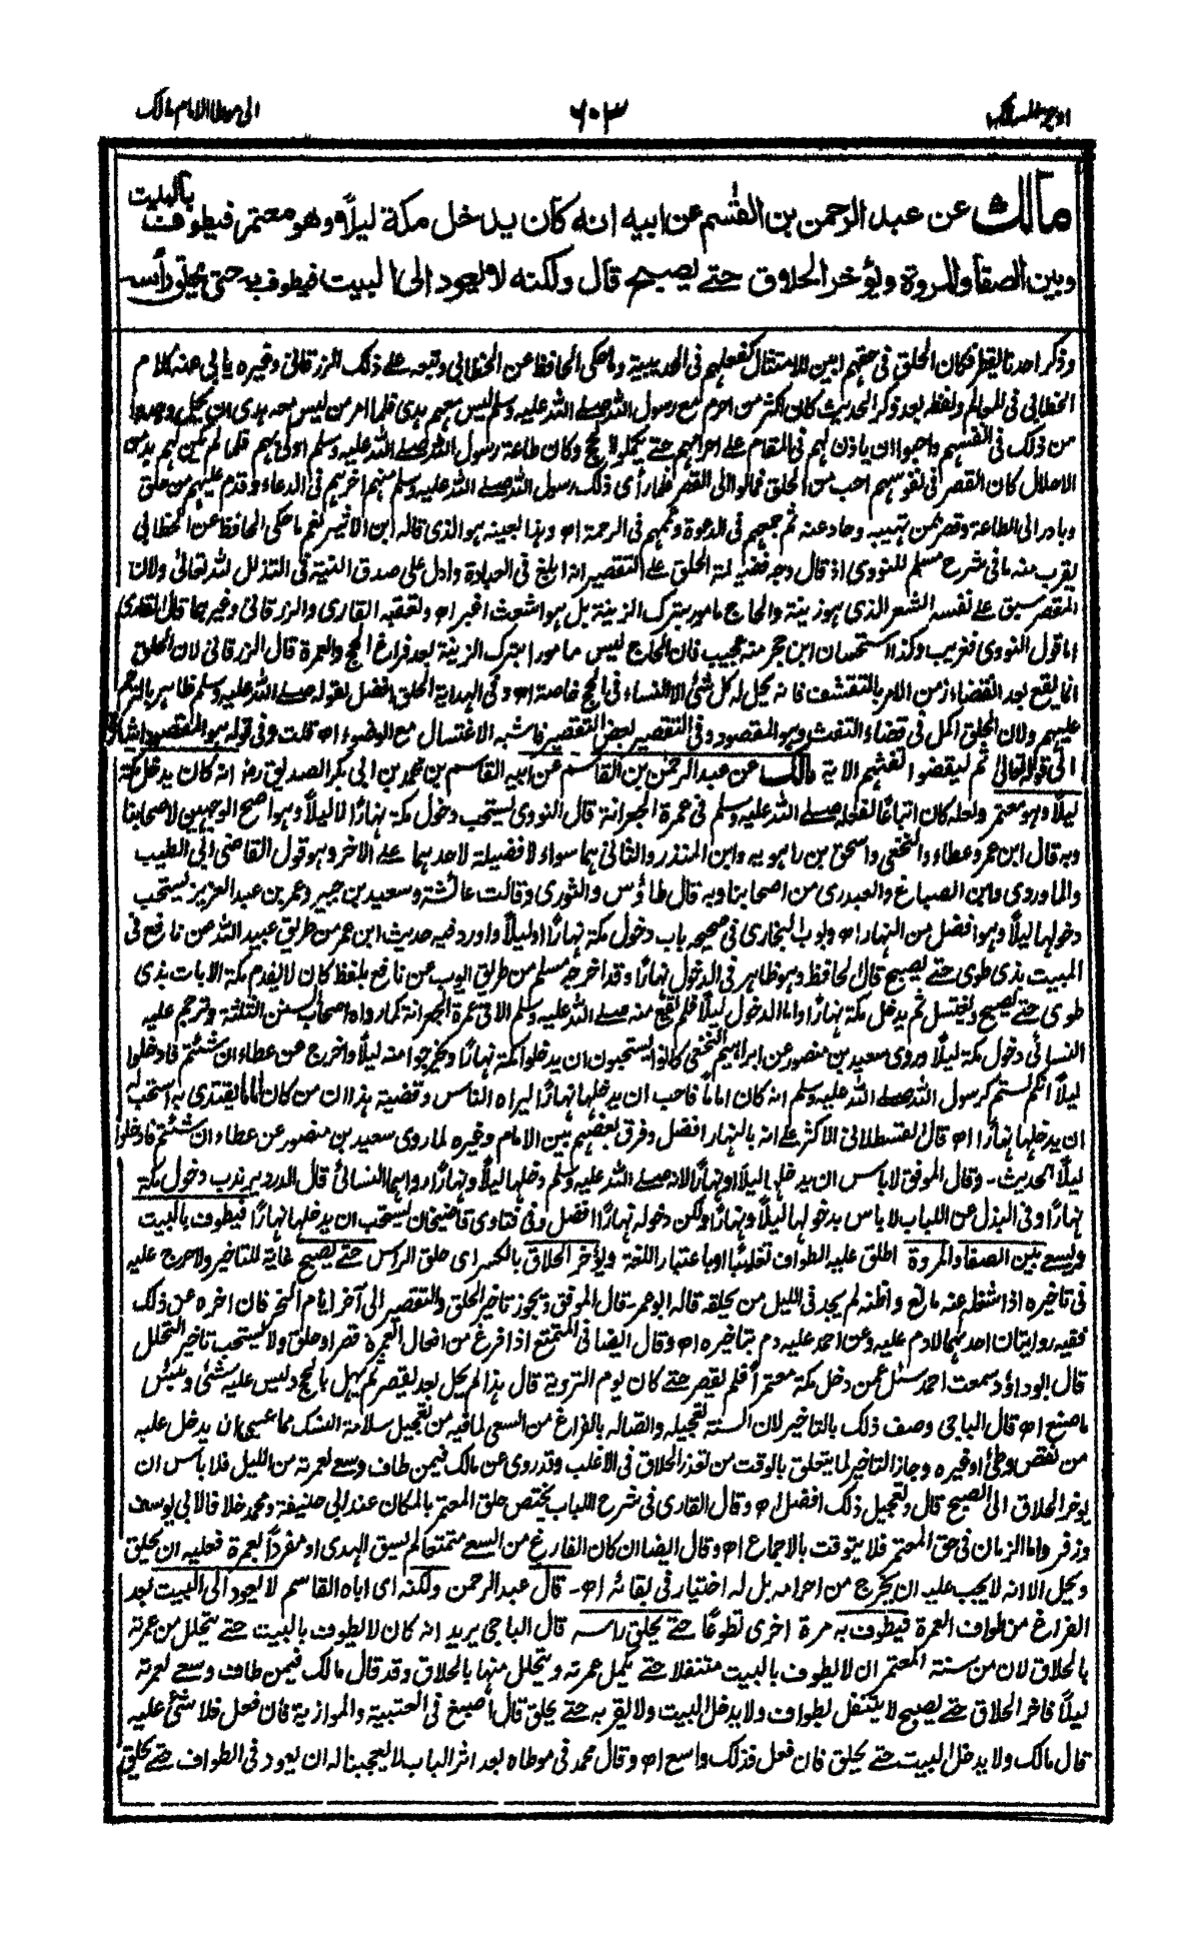 اوجز المسالك ٦٠٣ الى موطا الامام مالك
مالك عن عبد الرحمن بن القٰسم عن ابيه انه كان يدخل مكة ليلاً وهو معتمر فيطوف بالبيت
وبين الصفا والمروة ويؤخر الحلاق حتے يصبح قال ولكنه لا يعود الى البيت فيطوف به حتى يحلق رأسه
وذكر احدنا يقطر فكان الحلق فى حقهم ابين للامتثال كفعلهم فى الحديبية وما حكى الحافظ عن الخطابى وتبعه علے ذلك الزرقانى وغيره يابى عنه كلام
الخطابى فى المعالم ولفظه بعد ذكر الحديث كان اكثر من احرم مع رسول الله صلے الله عليه وسلم ليس معهم هدى فلما امر من ليس معه هدى ان يحل وجدوا
من ذلك فى انفسهم واحبوا ان ياذن لهم فى المقام علے احرامهم حتے يكملوا الحج وكان طاعة رسول الله صلے الله عليه وسلم اولى بهم فلما لم يكن لهم بد من
الاحلال كان القصر فى نفوسهم احب من الحلق فمالوا الى القصر فلما رأى ذلك رسول الله صلے الله عليه وسلم منهم اخرهم فى الدعاء وقدم عليهم من حلق
وبادر الى الطاعة وقصر من تهيبه وحاد عنه ثم جمعهم فى الدعوة وعمهم فى الرحمة اھ وهذا بعينه هو الذى قاله ابن الاثير نعم ما حكى الحافظ عن الخطابى
يقرب منه ما فى شرح مسلم للنووى اذ قال وجه فضيلة الحلق علے التقصير انه ابلغ فى العبادة وادل على صدق النية فى التذلل لله تعالى ولان
المقصر مبق علے نفسه الشعر الذى هو زينة والحاج مامور بترك الزينة بل هو اشعث اغبر اھ وتعقبه القارى والزرقانى وغيرهما قال القارى
اما قول النووى فغريب وكذا استحسان ابن حجر منه عجيب فان الحاج ليس مامورا بترك الزينة بعد فراغ الحج والعمرة قال الزرقانى لان الحلق
انما يقع بعد انقضاء زمن الامر بالتقشف فانه يحل له كل شئ الا النساء فى الحج خاصة اھ و فى الهداية الحلق افضل لقوله صلے الله عليه وسلم ظاهر بالترحم
عليهم ولان الحلق اكمل فى قضاء التفث وهو المقصود وفى التقصير بعض التقصير فاشبه الاغتسال مع الوضوء اھ قلت وفى قوله هو المقصود اشارة
الى قوله تعالى ثم ليقضوا تفثهم الاية مالك عن عبد الرحمن بن القاسم عن ابيه القاسم بن محمد بن ابى بكر الصديق رضـ انه كان يدخل مكة
ليلاً وهو معتمر ولعله كان اتباعًا لفعله صلے الله عليه وسلم فى عمرة الجعرانة قال النووى يستحب دخول مكة نهارًا لا ليلاً وهو اصح الوجهين لاصحابنا
وبه قال ابن عمر وعطاء والنخعى واسحق بن راهويه وابن المنذر والثانى هما سواء لا فضيلة لاحدهما علے الاخر وهو قول القاضى ابى الطيب
والماوردى وابن الصباغ والعبدرى من اصحابنا وبه قال طاؤس والثورى وقالت عائشة وسعيد بن جبير وعمر بن عبد العزيز يستحب
دخولها ليلاً وهو افضل من النهار اھ وبوب البخارى فى صحيحه باب دخول مكة نهارًا اوليلاً واورد فيه حديث ابن عمر من طريق عبيد الله عن نافع فى
المبيت بذى طوى حتے يصبح قال الحافظ وهو ظاهر فى الدخول نهارًا وقد اخرجه مسلم من طريق ايوب عن نافع بلفظ كان لا يقدم مكة الا بات بذى
طوى حتے يصبح ويغتسل ثم يدخل مكة نهارًا واما الدخول ليلاً فلم يقع منه صلے الله عليه وسلم الا فى عمرة الجعرانة كما رواه اصحاب السنن الثلثة وترجم عليه
النسائى دخول مكة ليلاً وروى سعيد بن منصور عن ابراهيم النخعى كانوا يستحبون ان يدخلوا مكة نهارًا ويخرجوا منه ليلاً واخرج عن عطاء ان شئتم فادخلوا
ليلاً انكم لستم كرسول الله صلے الله عليه وسلم انه كان اماماً فاحب ان يدخلها نهارًا ليراه الناس وقضية هذا ان من كان اماما يقتدى به استحب له
ان يدخلها نهارًا اھ قال القسطلانى الاكثر علے انه بالنهار افضل وفرق بعضهم بين الامام وغيره لما روى سعيد بن منصور عن عطاء ان شئتم فادخلوا
ليلاً الحديث - وقال الموفق لا باس ان يدخلها ليلاً او نهارًا لانه صلے الله عليه وسلم دخلها ليلاً ونهارًا رواهما النسائى قال الدردير ندب دخول مكة
نهارًا وفى البذل عن اللباب لا باس بدخولها ليلاً ونهارًا ولكن دخوله نهارًا افضل وفى فتاوى قاضيخان يستحب ان يدخلها نهارًا فيطوف بالبيت
ويسعے بين الصفا والمروة اطلق عليه الطواف تغليبًا او باعتبار اللغة ويؤخر الحلاق بالكسر اى حلق الراس حتے يصبح غاية للتاخير ولا حرج عليه
فى تاخيره اذا شغله عنه مانع واظنه لم يجد فى الليل من يحلقه قاله ابو عمر - قال الموفق ويجوز تاخير الحلق والتقصير الى آخر ايام النحر فان اخره عن ذلك
ففيه روايتان احدهما لا دم عليه وعن احمد عليه دم بتاخيره اھ وقال ايضا فى المتمتع اذا فرغ من افعال العمرة قصر او حلق ولا يستحب تاخير التحلل
قال ابو داؤد سمعت احمد سئل عمن دخل مكة معتمراً فلم يقصر حتے كان يوم التروية قال هذا لم يحل بعد يقصر ثم يهل بالحج وليس عليه شئ وبئس
ما صنع اھ قال الباجى وصف ذلك بالتاخير لان السنة تعجيله واتصاله بالفراغ من السعى لما فيه من تعجيل سلامة النسك مما عسى ان يدخل عليه
من نقص وطئ او غيره وجاز التاخير لما يتعلق بالوقت من تعذر الحلاق فى الاغلب وقد روى عن مالك فيمن طاف وسعے لعمرته من الليل فلا باس ان
يؤخر الحلاق الى الصبح قال وتعجيل ذلك افضل اھ وقال القارى فى شرح اللباب يختص حلق المعتمر بالمكان عند ابى حنيفة ومحمد خلافا لابى يوسف
وزفر واما الزمان فى حق المعتمر فلا يتوقت بالاجماع اھ وقال ايضا ان كان الفارغ من السعے متمتعا لم يسق الهدى او مفرداً بعمرة فعليه ان يحلق
ويحل الا انه لا يجب عليه ان يخرج من احرامه بل له اختيار فى بقائه اھ - قال عبد الرحمن ولكنه اى اباه القاسم لا يعود الى البيت بعد
الفراغ من طواف العمرة فيطوف به مرة اخرى تطوعًا حتے يحلق راسه قال الباجى يريد انه كان لا يطوف بالبيت حتے يتحلل من عمرته
بالحلاق لان من سنة المعتمر ان لا يطوف بالبيت متنفلا حتے يكمل عمرته ويتحلل منها بالحلاق وقد قال مالك فيمن طاف وسعے لعمرته
ليلاً فاخر الحلاق حتے يصبح لا يتنفل بطواف ولا يدخل البيت ولا يقربه حتے يحلق قال اصبغ فى العتبية والموازية فان فعل فلا شئ عليه
قال مالك ولا يدخل البيت حتے يحلق فان فعل فذلك واسع اھ وقال محمد فى موطاه بعد اثر الباب لا يعجبنا له ان يعود فى الطواف حتے يحلق